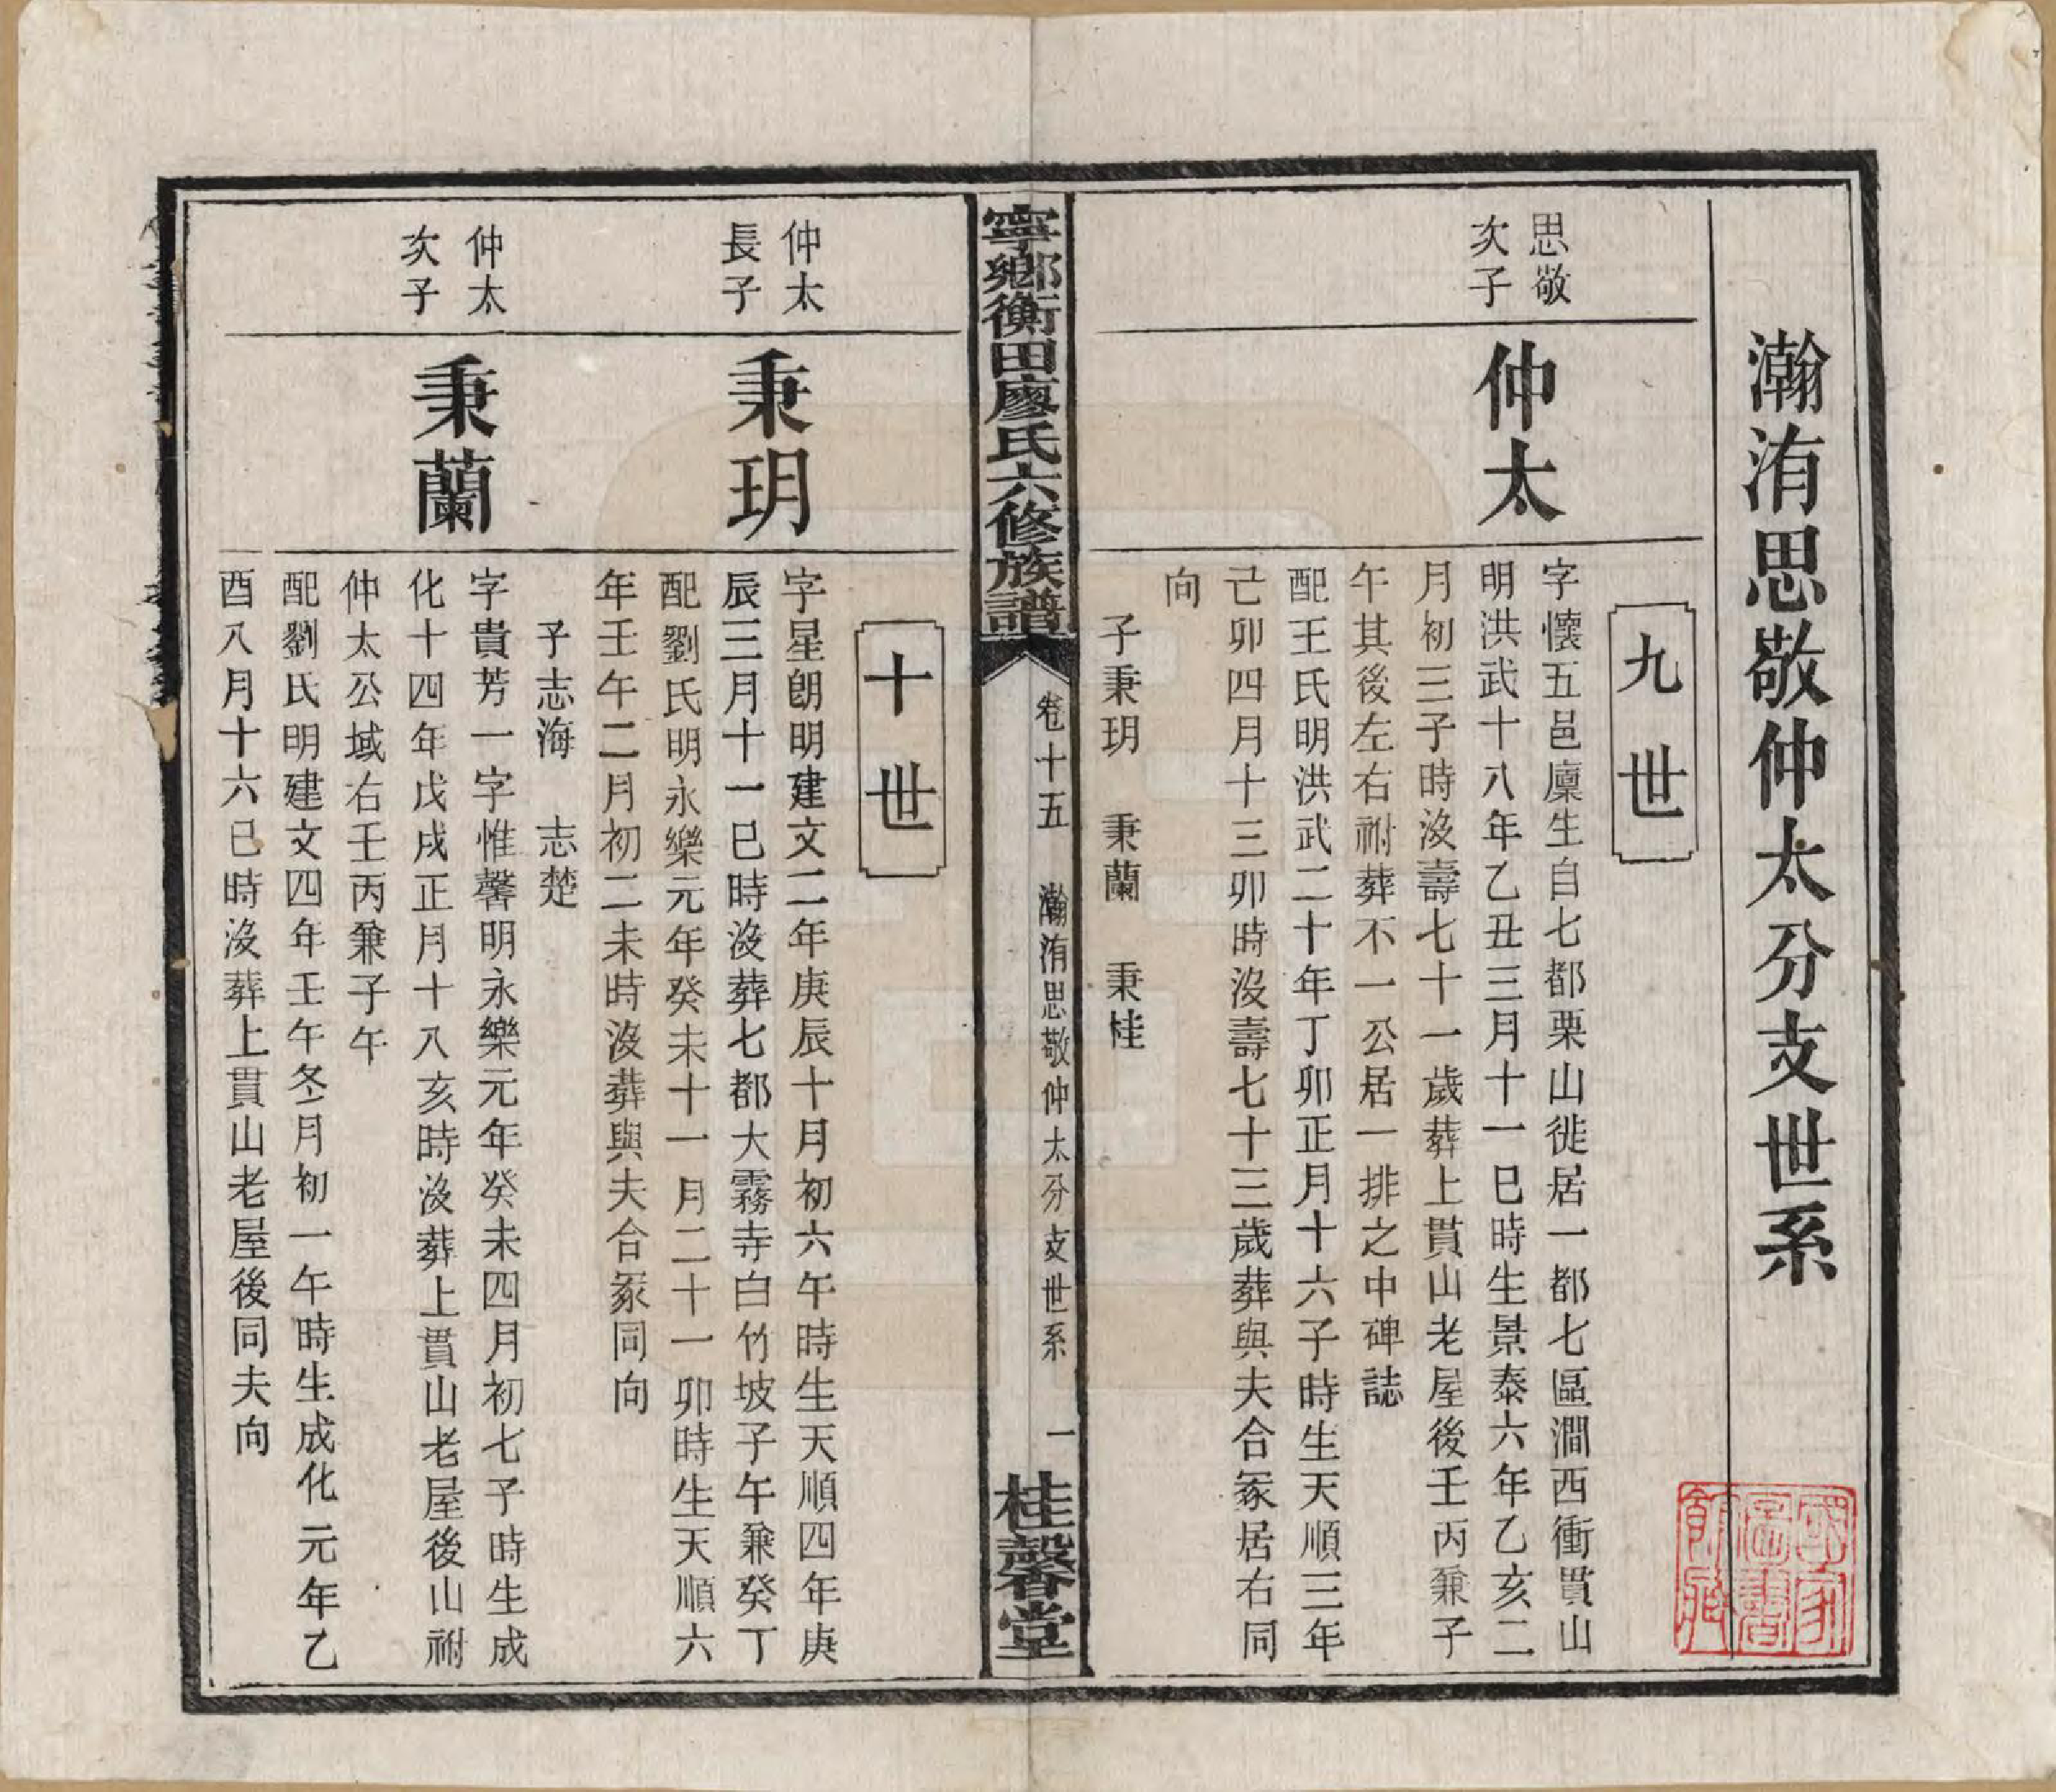 瀚洧思敬仲太分支世系
九世
思敬
次子
仲太
字懷五邑廩生自七都栗山徙居一都七區澗西衝貫山
明洪武十八年乙丑三月十一巳時生景泰六年乙亥二
月初三子時沒壽七十一歲葬上貫山老屋後壬丙兼子
午其後左右祔葬不一公居一排之中碑誌
配王氏明洪武二十年丁卯正月十六子時生天順三年
己卯四月十三卯時沒壽七十三歲葬與夫合冢居右同
向
子秉玥 秉蘭 秉桂
寧鄉衡田廖氏六修族譜
卷十五 瀚洧思敬仲太分支世系 一
桂馨堂
十世
仲太
長子
秉玥
字星朗明建文二年庚辰十月初六午時生天順四年庚
辰三月十一巳時沒葬七都大霧寺白竹坡子午兼癸丁
配劉氏明永樂元年癸未十一月二十一卯時生天順六
年壬午二月初二未時沒葬與夫合冢同向
子志海 志楚
仲太
次子
秉蘭
字貴芳一字惟馨明永樂元年癸未四月初七子時生成
化十四年戊戌正月十八亥時沒葬上貫山老屋後山祔
仲太公域右壬丙兼子午
配劉氏明建文四年壬午冬月初一午時生成化元年乙
酉八月十六巳時沒葬上貫山老屋後同夫向
國家
圖書
館藏